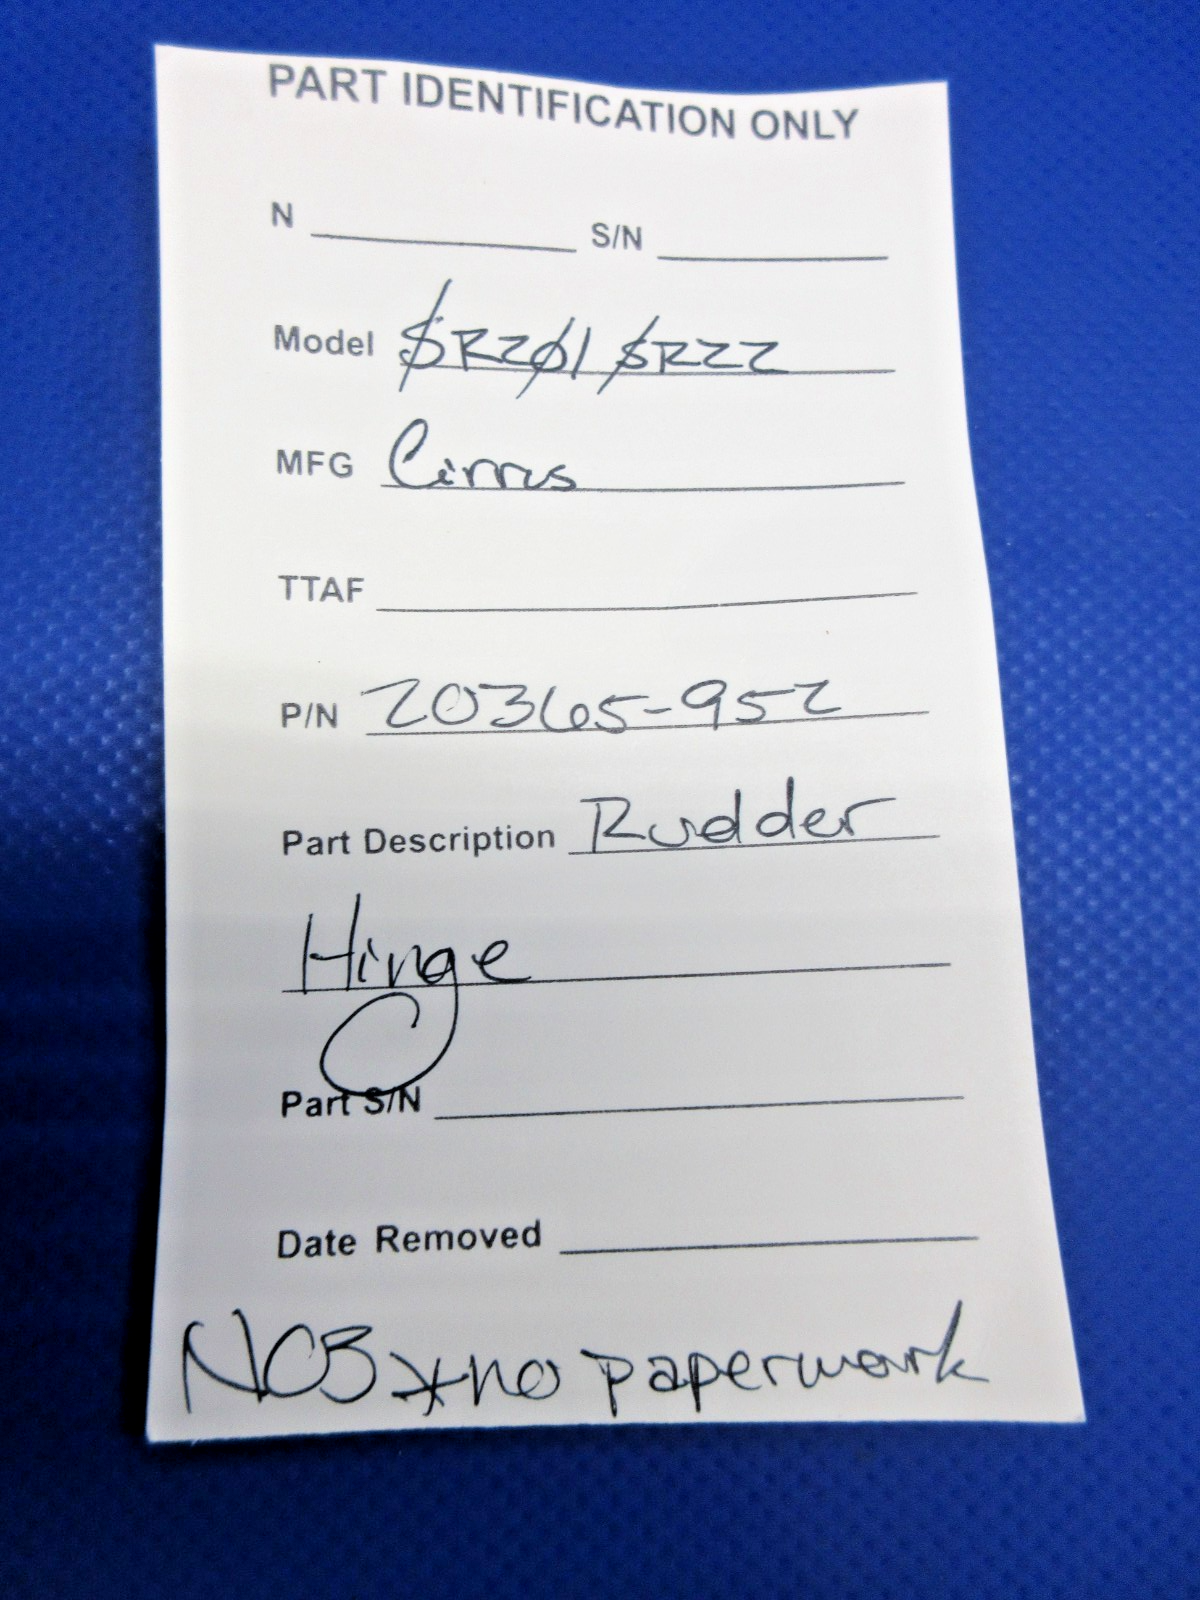 PART IDENTIFICATION ONLY
N S/N
Model SR20/SR22
MFG Cirrus
TTAF
P/N 20365-952
Part Description Rudder
Hinge
Part S/N
Date Removed
NOS *no paperwork